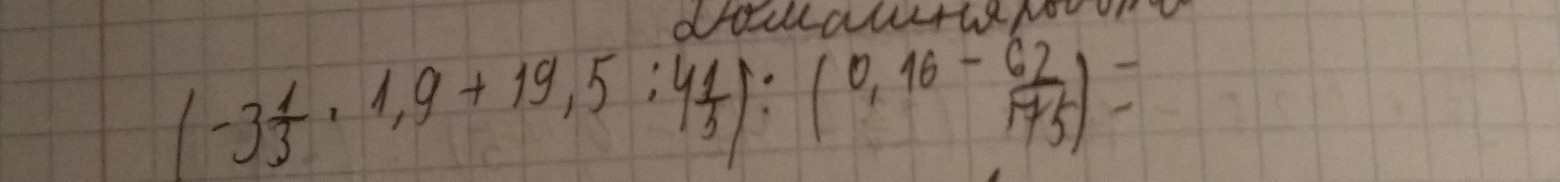 Домашня робота
(-3 1/3 · 1,9 + 19,5 : 4 1/3) : (0,16 - 62/175) =